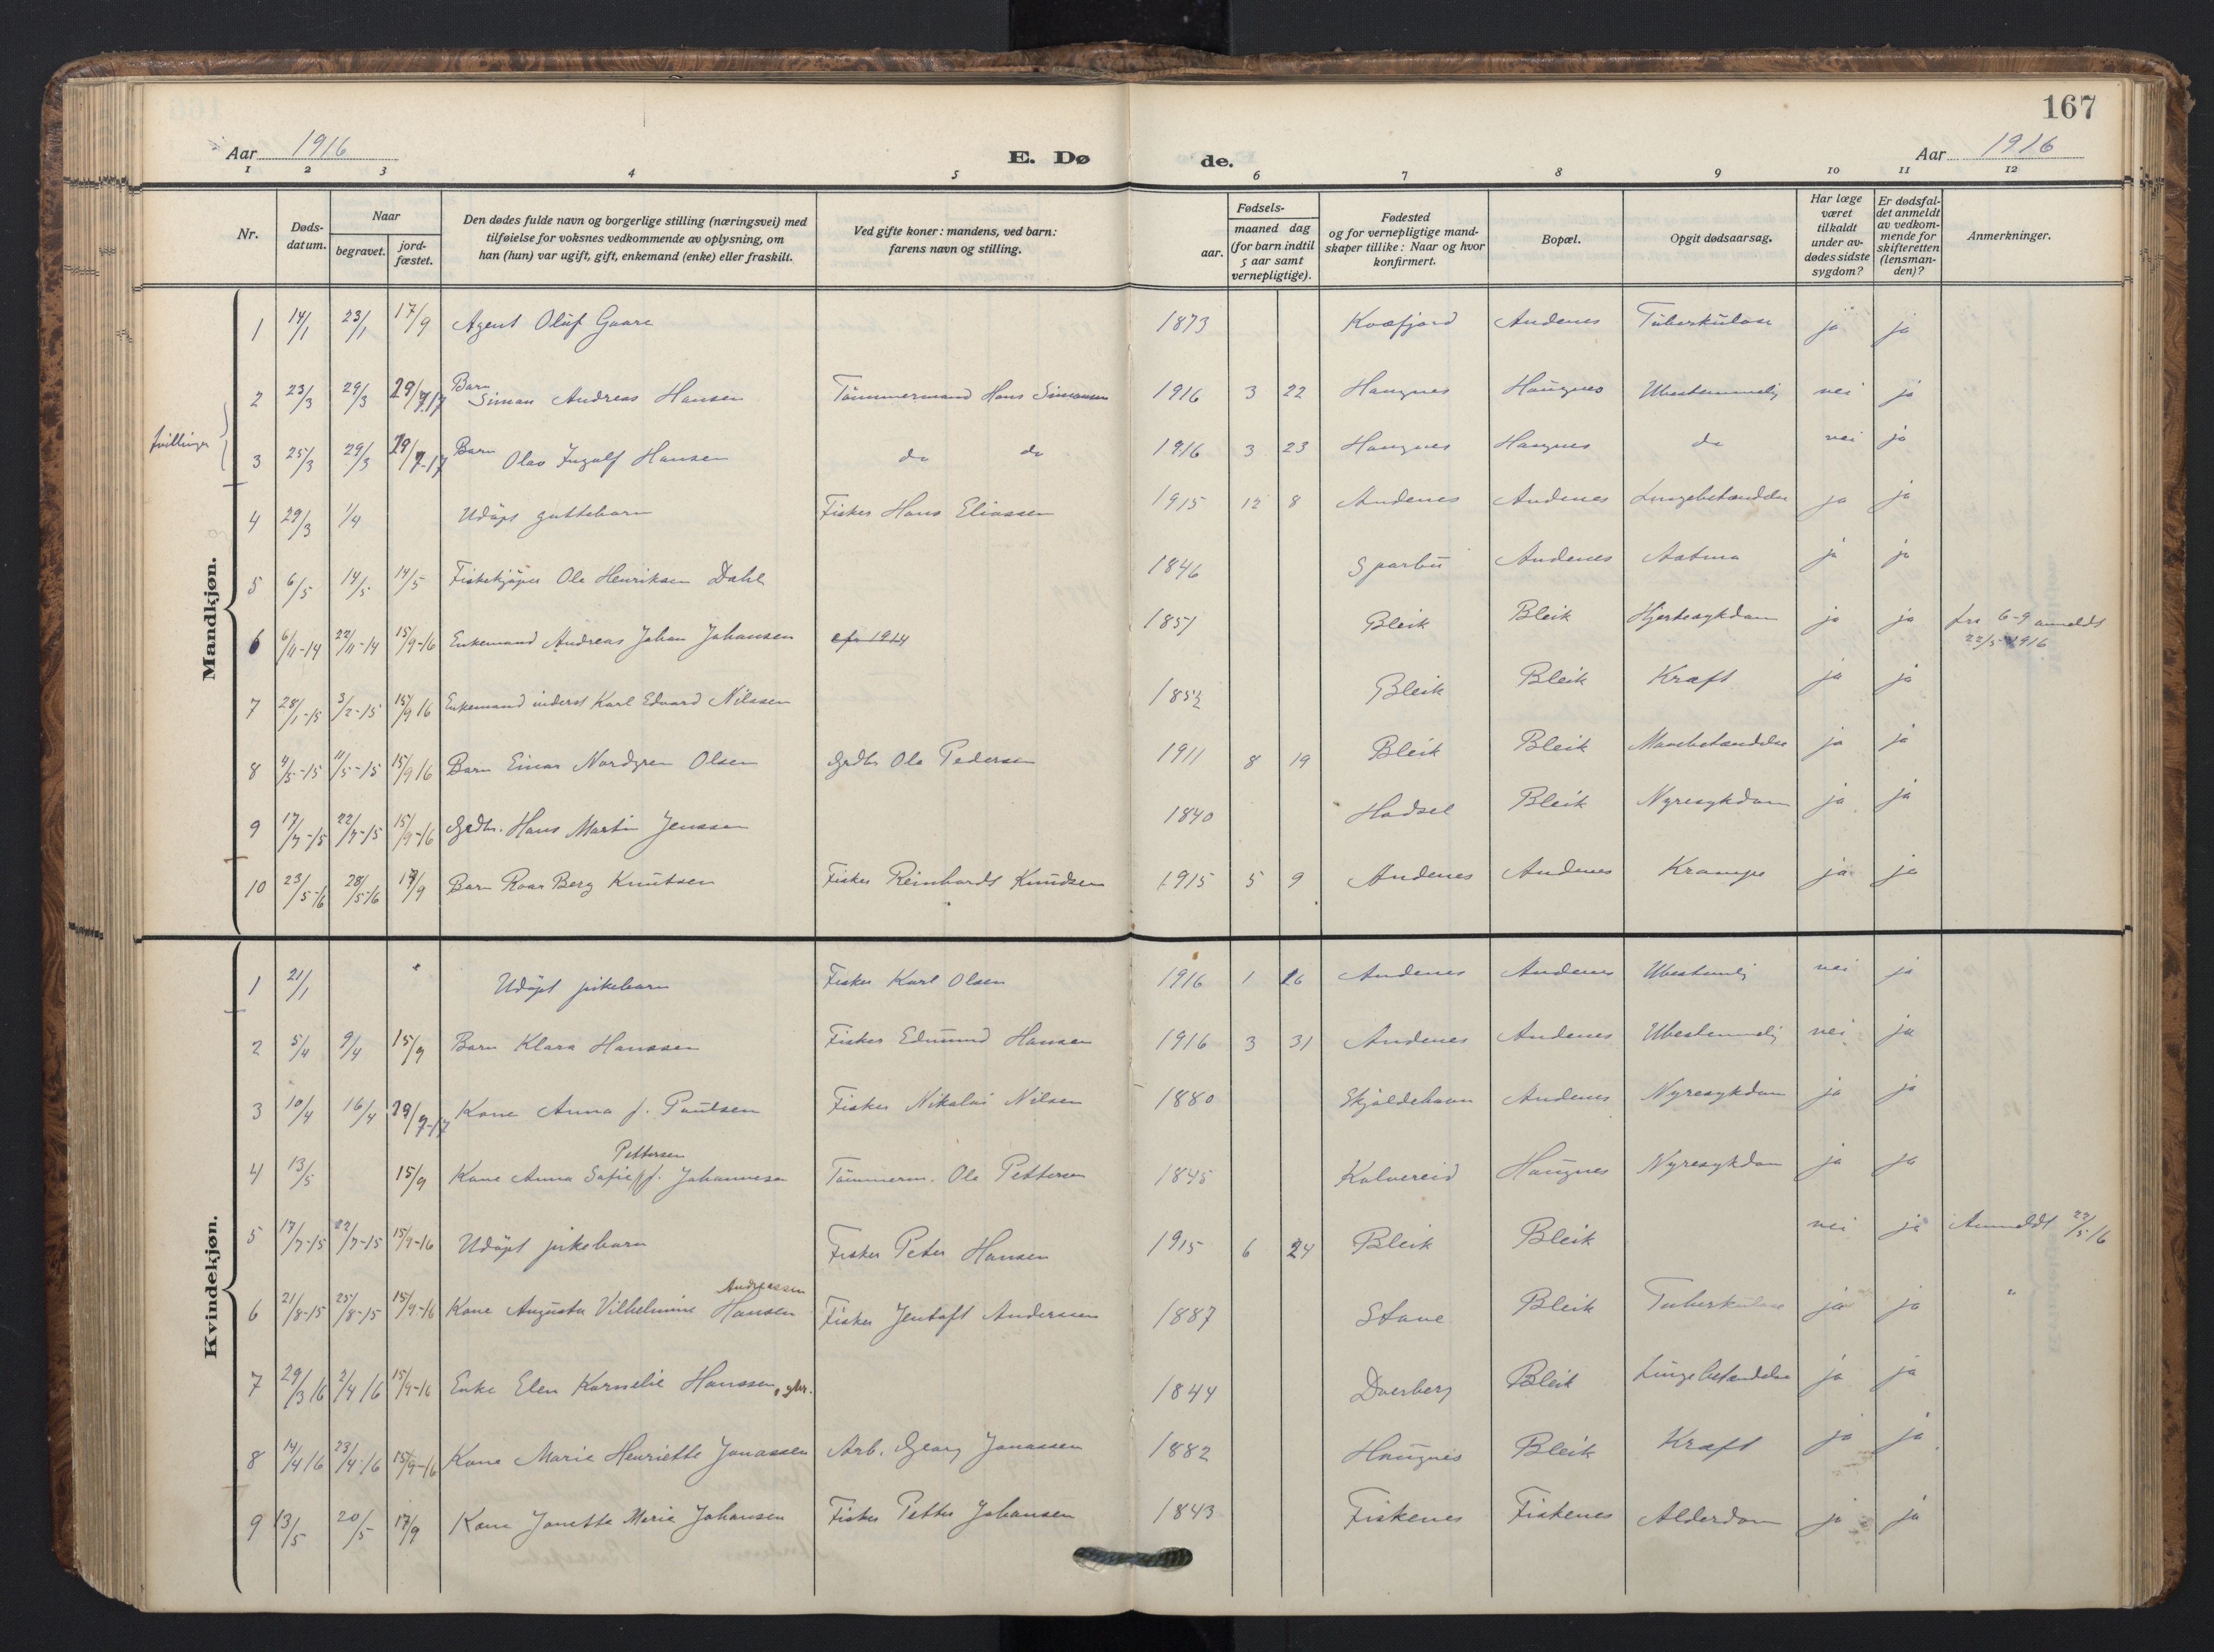 167
Aar 1916 E. Dø de. Aar 1916
1 2 3 4 5 6 7 8 9 10 11 12
Nr. Døds-datum. Naar begravet. jord-fæstet. Den dødes fulde navn og borgerlige stilling (næringsvei) med tilføielse for voksnes vedkommende av oplysning, om han (hun) var ugift, gift, enkemand (enke) eller fraskilt. Ved gifte koner: mandens, ved barn: farens navn og stilling. Fødsels- aar. maaned dag (for barn indtil 5 aar samt vernepligtige). Fødested og for vernepligtige mandskaper tillike: Naar og hvor konfirmert. Bopæl. Opgit dødsaarsag. Har læge været tilkaldt under avdødes sidste sygdom? Er dødsfaldet anmeldt av vedkommende for skifteretten (lensmanden)? Anmerkninger.
Mandkjøn.
1 14/1 23/1 17/9 Agent Oluf Gaare 1873 Kvæfjord Andenes Tuberkulose ja ja
tvillinger
2 23/3 29/3 29/7 17 Barn Simon Andreas Hansen Tömmermand Hans Simonsen 1916 3 22 Haugnes Haugnes Ubestemmelig nei ja
3 25/3 29/3 29/7-17 Barn Olav Ingolf Hansen do do 1916 3 23 Haugnes Haugnes do nei ja
4 29/3 1/4 Udöpt guttebarn Fisker Hans Eliassen 1915 12 8 Andenes Andenes Lungebetændelse ja ja
5 6/5 14/5 14/5 Fiskekjöper Ole Henriksen Dahl 1846 Sparbu Andenes Astma ja ja
6 6/11-14 22/11-14 15/9-16 Enkemand Andreas Johan Johansen 1851 Bleik Bleik Hjertesykdom ja ja fra 6-9 anmeldt 22/5-1916
7 28/1-15 3/2-15 15/9 16 Enkemand inderst Karl Edvard Nilssen 1852 Bleik Bleik Kræft ja ja
8 4/5-15 11/5-15 15/9 16 Barn Einar Nordgren Olsen Grdbr Ole Pedersen 1911 8 19 Bleik Bleik Mavebetændelse ja ja
9 17/7-15 22/7-15 15/9-16 Grdbr. Hans Martin Jenssen 1840 Hadsel Bleik Nyresykdom ja ja
10 23/5-16 28/5-16 17/9 Barn Roar Berg Knutsen Fisker Reinhardt Knudsen 1915 5 9 Andenes Andenes Krampe ja ja
Kvindekjøn.
1 21/1 Udöpt pikebarn Fisker Karl Olsen 1916 1 16 Andenes Andenes Ubestemlig nei ja
2 5/4 9/4 15/9 Barn Klara Hanssen Fisker Edmund Hansen 1916 3 31 Andenes Andenes Ubestemmelig nei ja
3 10/4 16/4 29/7-17 Kone Anna f. Paulsen Fisker Nikolai Nilsen 1880 Skjoldehavn Andenes Nyresykdom ja ja
Pettersen
4 13/5 15/9 Kone Anna Sofie f. Johannesen Tömmerm. Ole Pettersen 1845 Kalvereid Haugnes Nyresykdom ja ja
5 17/7-15 22/7-15 15/9-16 Udöpt pikebarn Fisker Peter Hansen 1915 6 24 Bleik Bleik nei ja Anmeldt 22/5 16
Andreassen
6 21/8-15 25/8-15 15/9-16 Kone Augusta Vilhelmine Hansen Fisker Jentoft Anderssen 1887 Stave Bleik Tuberkulose ja ja "
7 29/3 16 2/4 16 15/9-16 Enke Elen Kornelie Hanssen 1844 Dverberg Bleik Lungebetændelse ja ja
8 14/4 16 23/4-16 15/9-16 Kone Marie Henriette Jonassen Arb. Georg Jonassen 1882 Haugnes Bleik Kræft ja ja
9 13/5 20/5 17/9 Kone Jonetta Marie Johansen Fisker Petter Johansen 1843 Fiskenes Fiskenes Alderdom ja ja